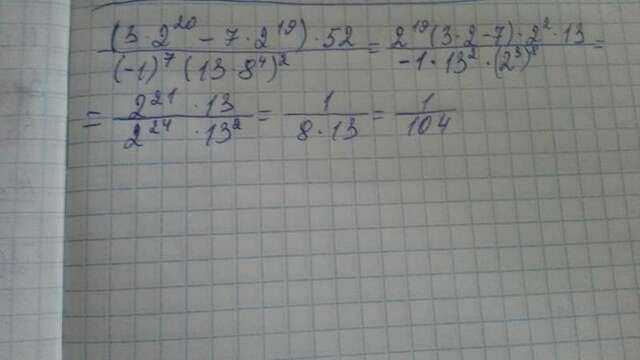 (3·2²⁰ - 7·2¹⁹)·52 / (-1)⁷ (13·8⁴)² = 2¹⁹(3·2-7)·2²·13 / -1·13²·(2³)⁸ =
= 2²¹·13 / 2²⁴·13² = 1 / 8·13 = 1 / 104